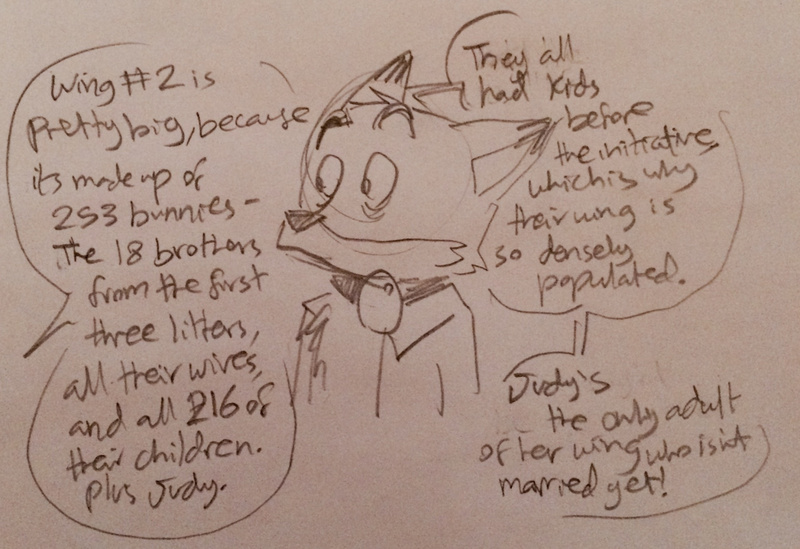 Wing #2 is
pretty big, because
its made up of
253 bunnies -
The 18 brothers
from the first
three litters,
all their wives,
and all 216 of
their children.
Plus Judy.
They all
had kids
before
the initiative,
which is why
their wing is
so densely
populated.
Judy's
the only adult
of her wing who isn't
married yet!